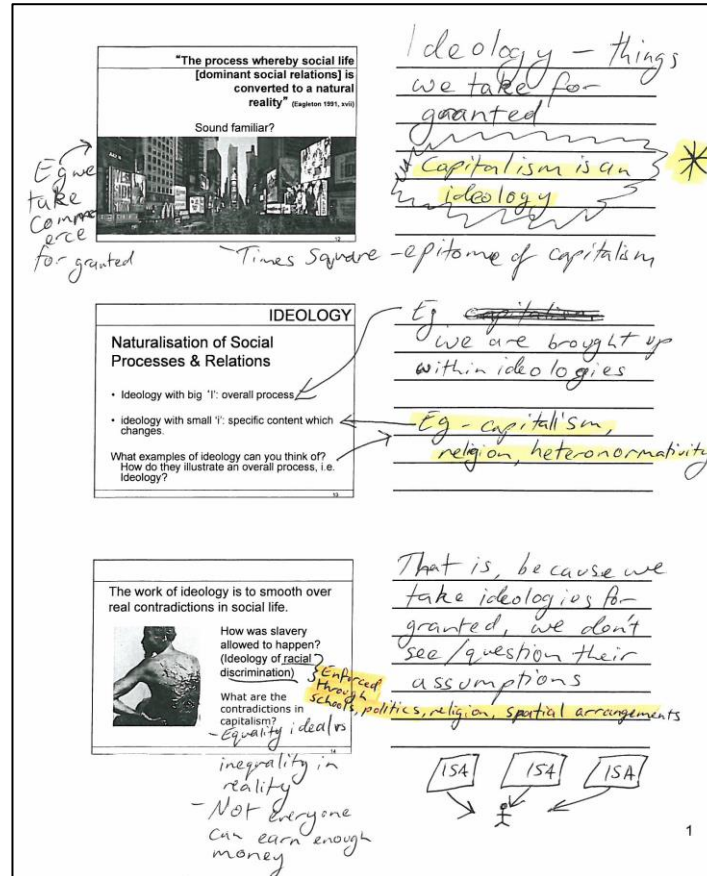 "The process whereby social life
[dominant social relations] is
converted to a natural
reality" (Eagleton 1991, xvii)
Sound familiar?
12
Eg we
take
comm
erce
for granted
- Times Square - epitome of capitalism
Ideology - things
we take for
granted
Capitalism is an
ideology
IDEOLOGY
Naturalisation of Social
Processes & Relations
• Ideology with big 'I': overall process
• ideology with small 'i': specific content which
changes.
What examples of ideology can you think of?
How do they illustrate an overall process, i.e.
Ideology?
13
Eg capitalism,
we are brought up
within ideologies
Eg - capitalism,
religion, heteronormativity
The work of ideology is to smooth over
real contradictions in social life.
How was slavery
allowed to happen?
(Ideology of racial
discrimination)
What are the
contradictions in
capitalism?
14
Enforced
through
schools, politics, religion, spatial arrangements
- Equality ideal vs
inequality in
reality
- Not everyone
can earn enough
money
That is, because we
take ideologies for
granted, we don't
see/question their
assumptions
ISA
ISA
ISA
1